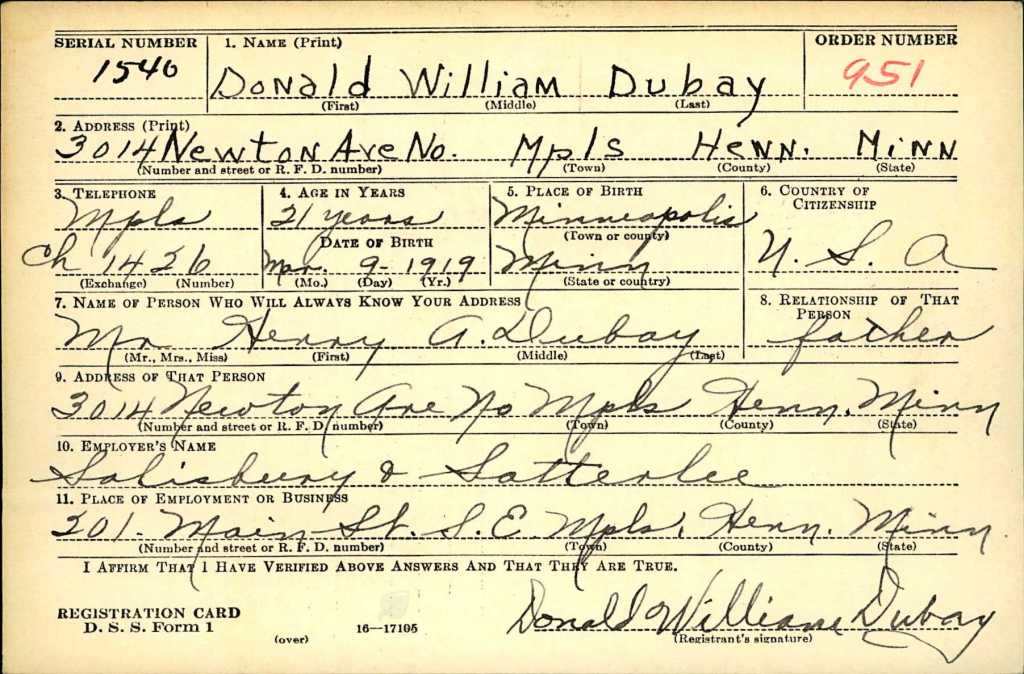 SERIAL NUMBER 1. NAME (Print) ORDER NUMBER
1546 Donald William Dubay 951
(First) (Middle) (Last)
2. ADDRESS (Print)
3014 Newton Ave No. Mpls Henn. Minn
(Number and street or R. F. D. number) (Town) (County) (State)
3. TELEPHONE 4. AGE IN YEARS 5. PLACE OF BIRTH 6. COUNTRY OF CITIZENSHIP
Mpls 21 years Minneapolis
DATE OF BIRTH (Town or county) U. S. A
Ch 1426 Mar. 9- 1919 Minn
(Exchange) (Number) (Mo.) (Day) (Yr.) (State or country)
7. NAME OF PERSON WHO WILL ALWAYS KNOW YOUR ADDRESS 8. RELATIONSHIP OF THAT PERSON
Mr Henry A. Dubay father
(Mr., Mrs., Miss) (First) (Middle) (Last)
9. ADDRESS OF THAT PERSON
3014 Newton Ave No Mpls Henn. Minn
(Number and street or R. F. D. number) (Town) (County) (State)
10. EMPLOYER'S NAME
Salisbury & Satterlee
11. PLACE OF EMPLOYMENT OR BUSINESS
201- Main St. S. E. Mpls. Henn. Minn
(Number and street or R. F. D. number) (Town) (County) (State)
I AFFIRM THAT I HAVE VERIFIED ABOVE ANSWERS AND THAT THEY ARE TRUE.
REGISTRATION CARD
D. S. S. Form 1 (over) 16—17105
Donald William Dubay
(Registrant's signature)